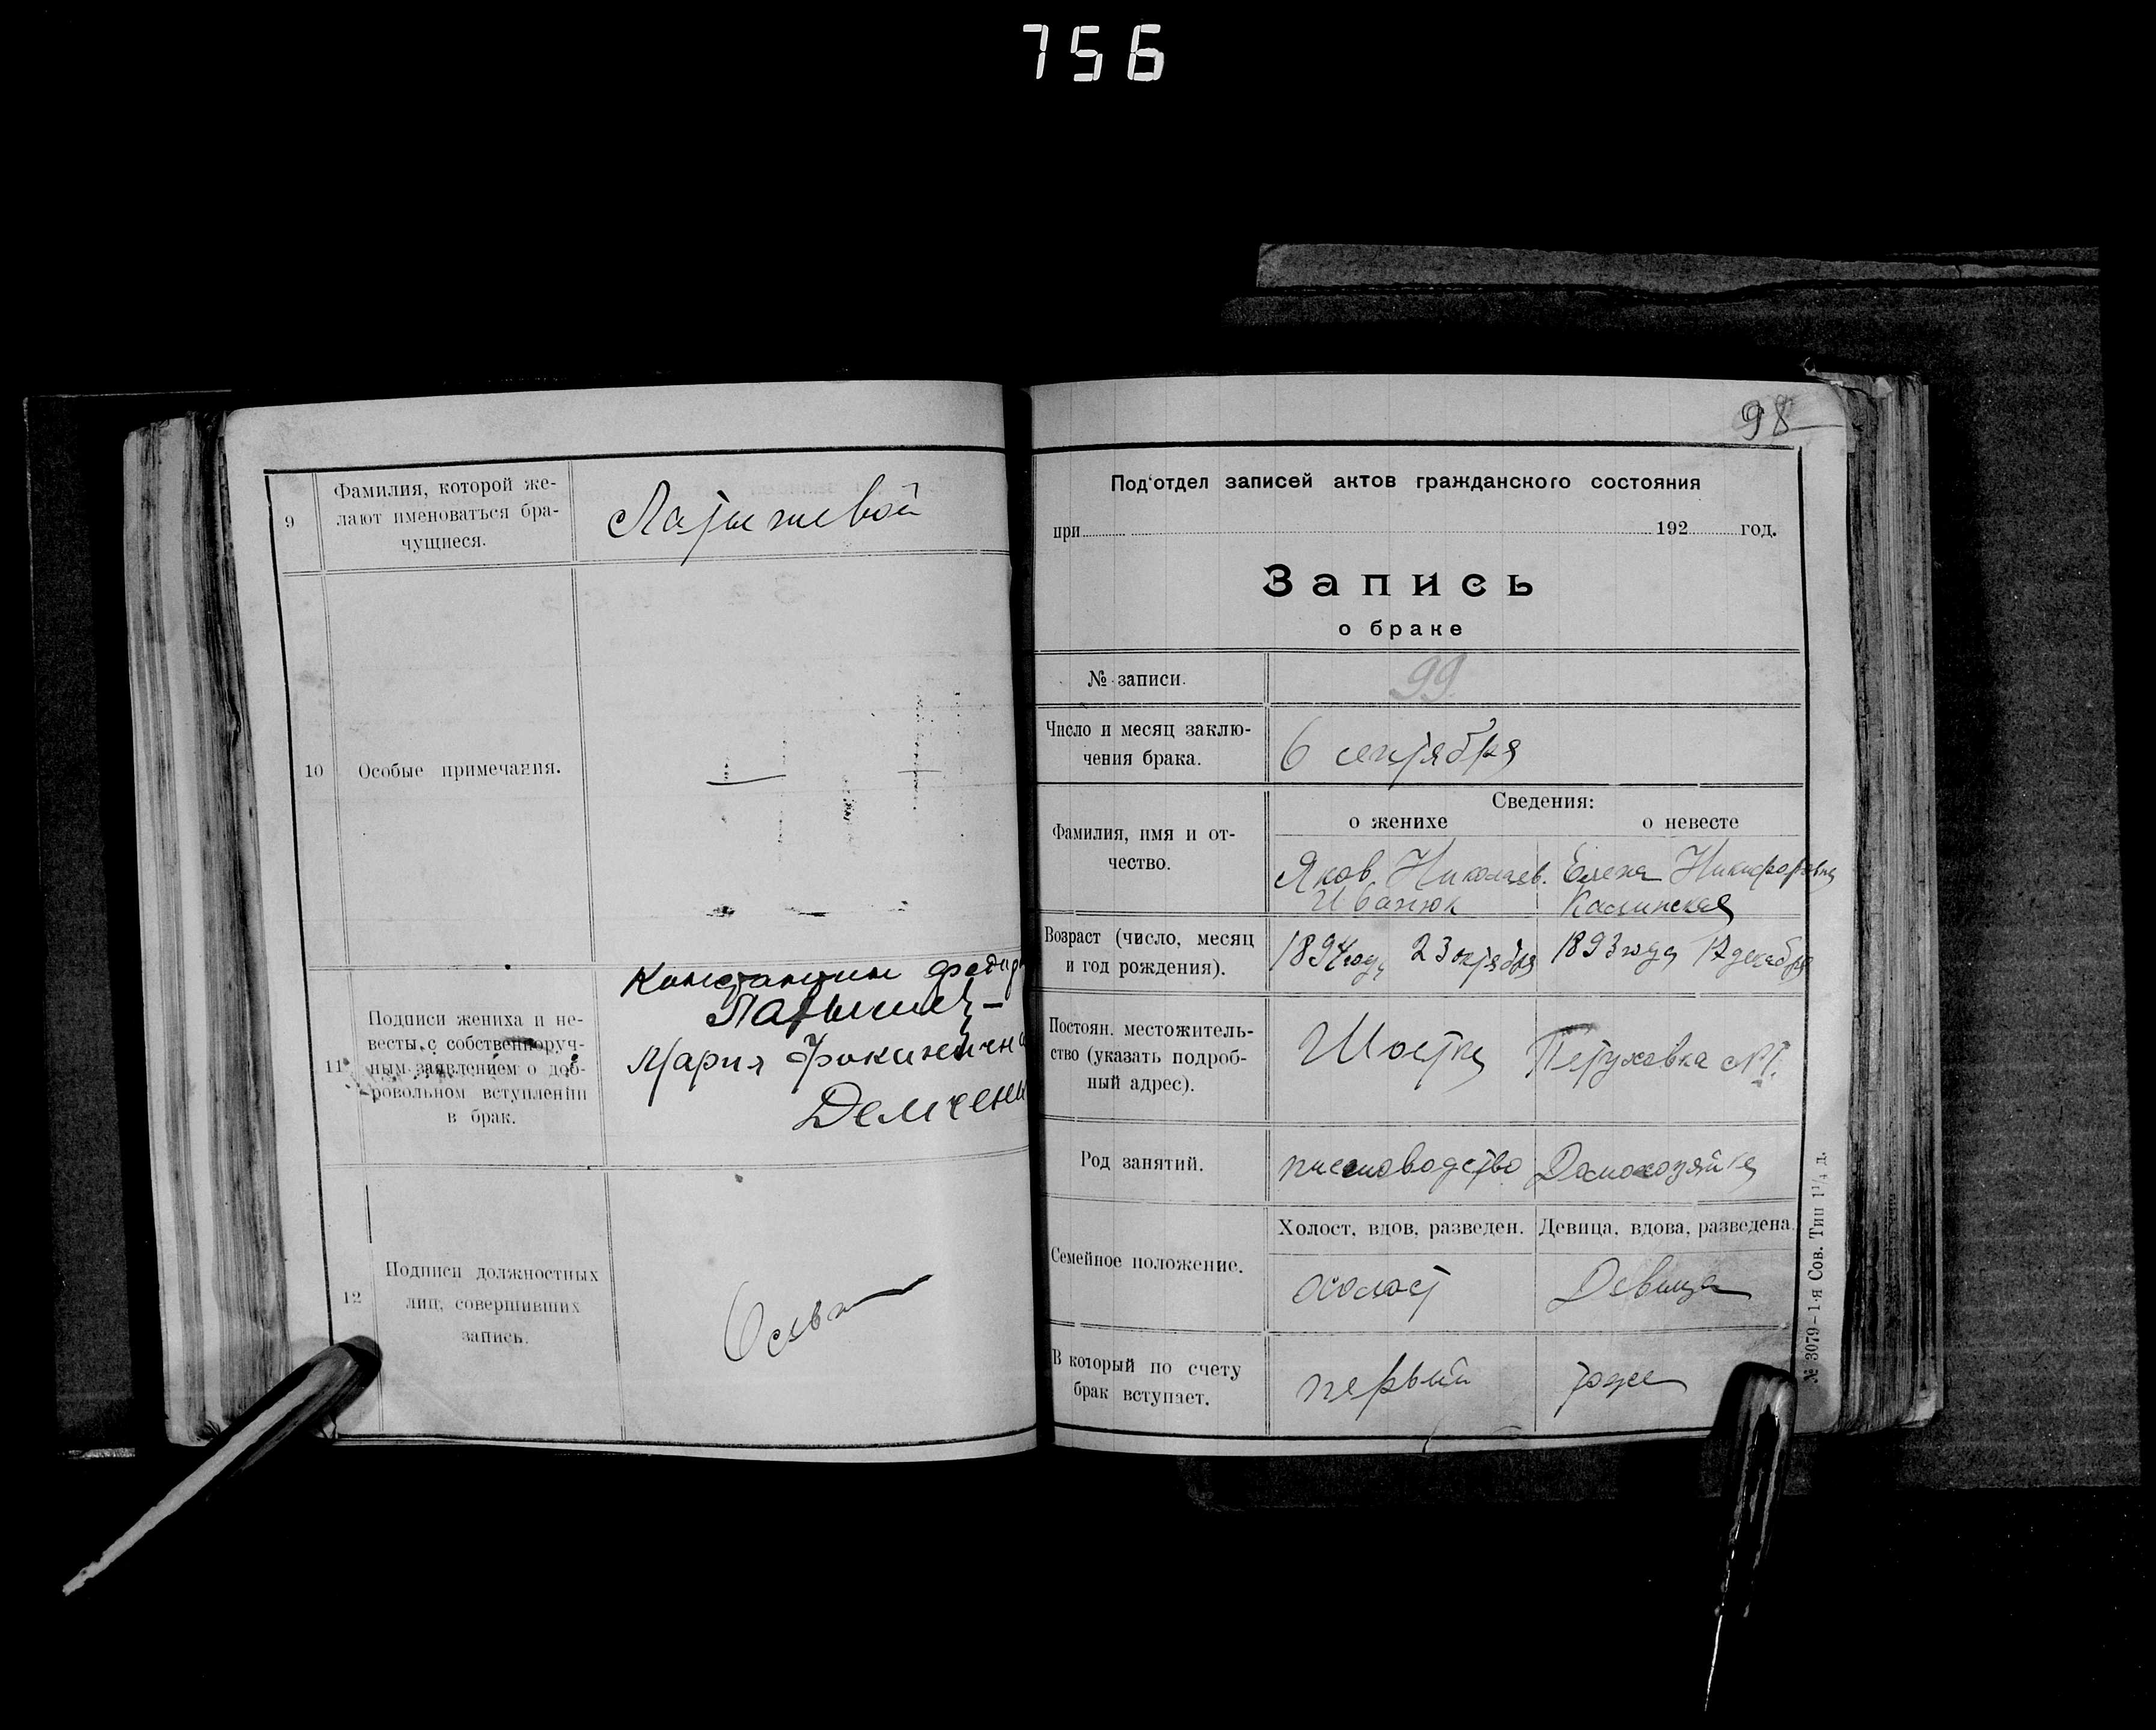 756
9
Фамилия, которой же-
лают именоваться бра-
чущиеся.
Латышевой
10
Особые примечания.
11
Подписи жениха и не-
весты с собственноруч-
ным заявлением о доб-
ровольном вступлении
в брак.
Константин
Латышев
Мария
12
Подписи должностных
лиц, совершивших
запись.
98
Под'отдел записей актов гражданского состояния
при 192 год.
Запись
о браке
№ записи.
99
Число и месяц заклю-
чения брака.
6 сентября
Сведения:
Фамилия, имя и от-
чество.
о женихе
о невесте
Яков Николаев.
Иванюк
Елена Никифоровна
Калинская
Возраст (число, месяц
и год рождения).
1894 году 23 октября
1893 года 12 декабря
Постоян. местожитель-
ство (указать подроб-
ный адрес).
Шостка
Петуховка №1.
Род занятий.
Домохозяйка
Семейное положение.
Холост, вдов, разведен.
Девица, вдова, разведена.
холост
Девица
В который по счету
брак вступает.
первый
тоже
№ 3079-1-я Сов. Тип 1¹/₄ д.